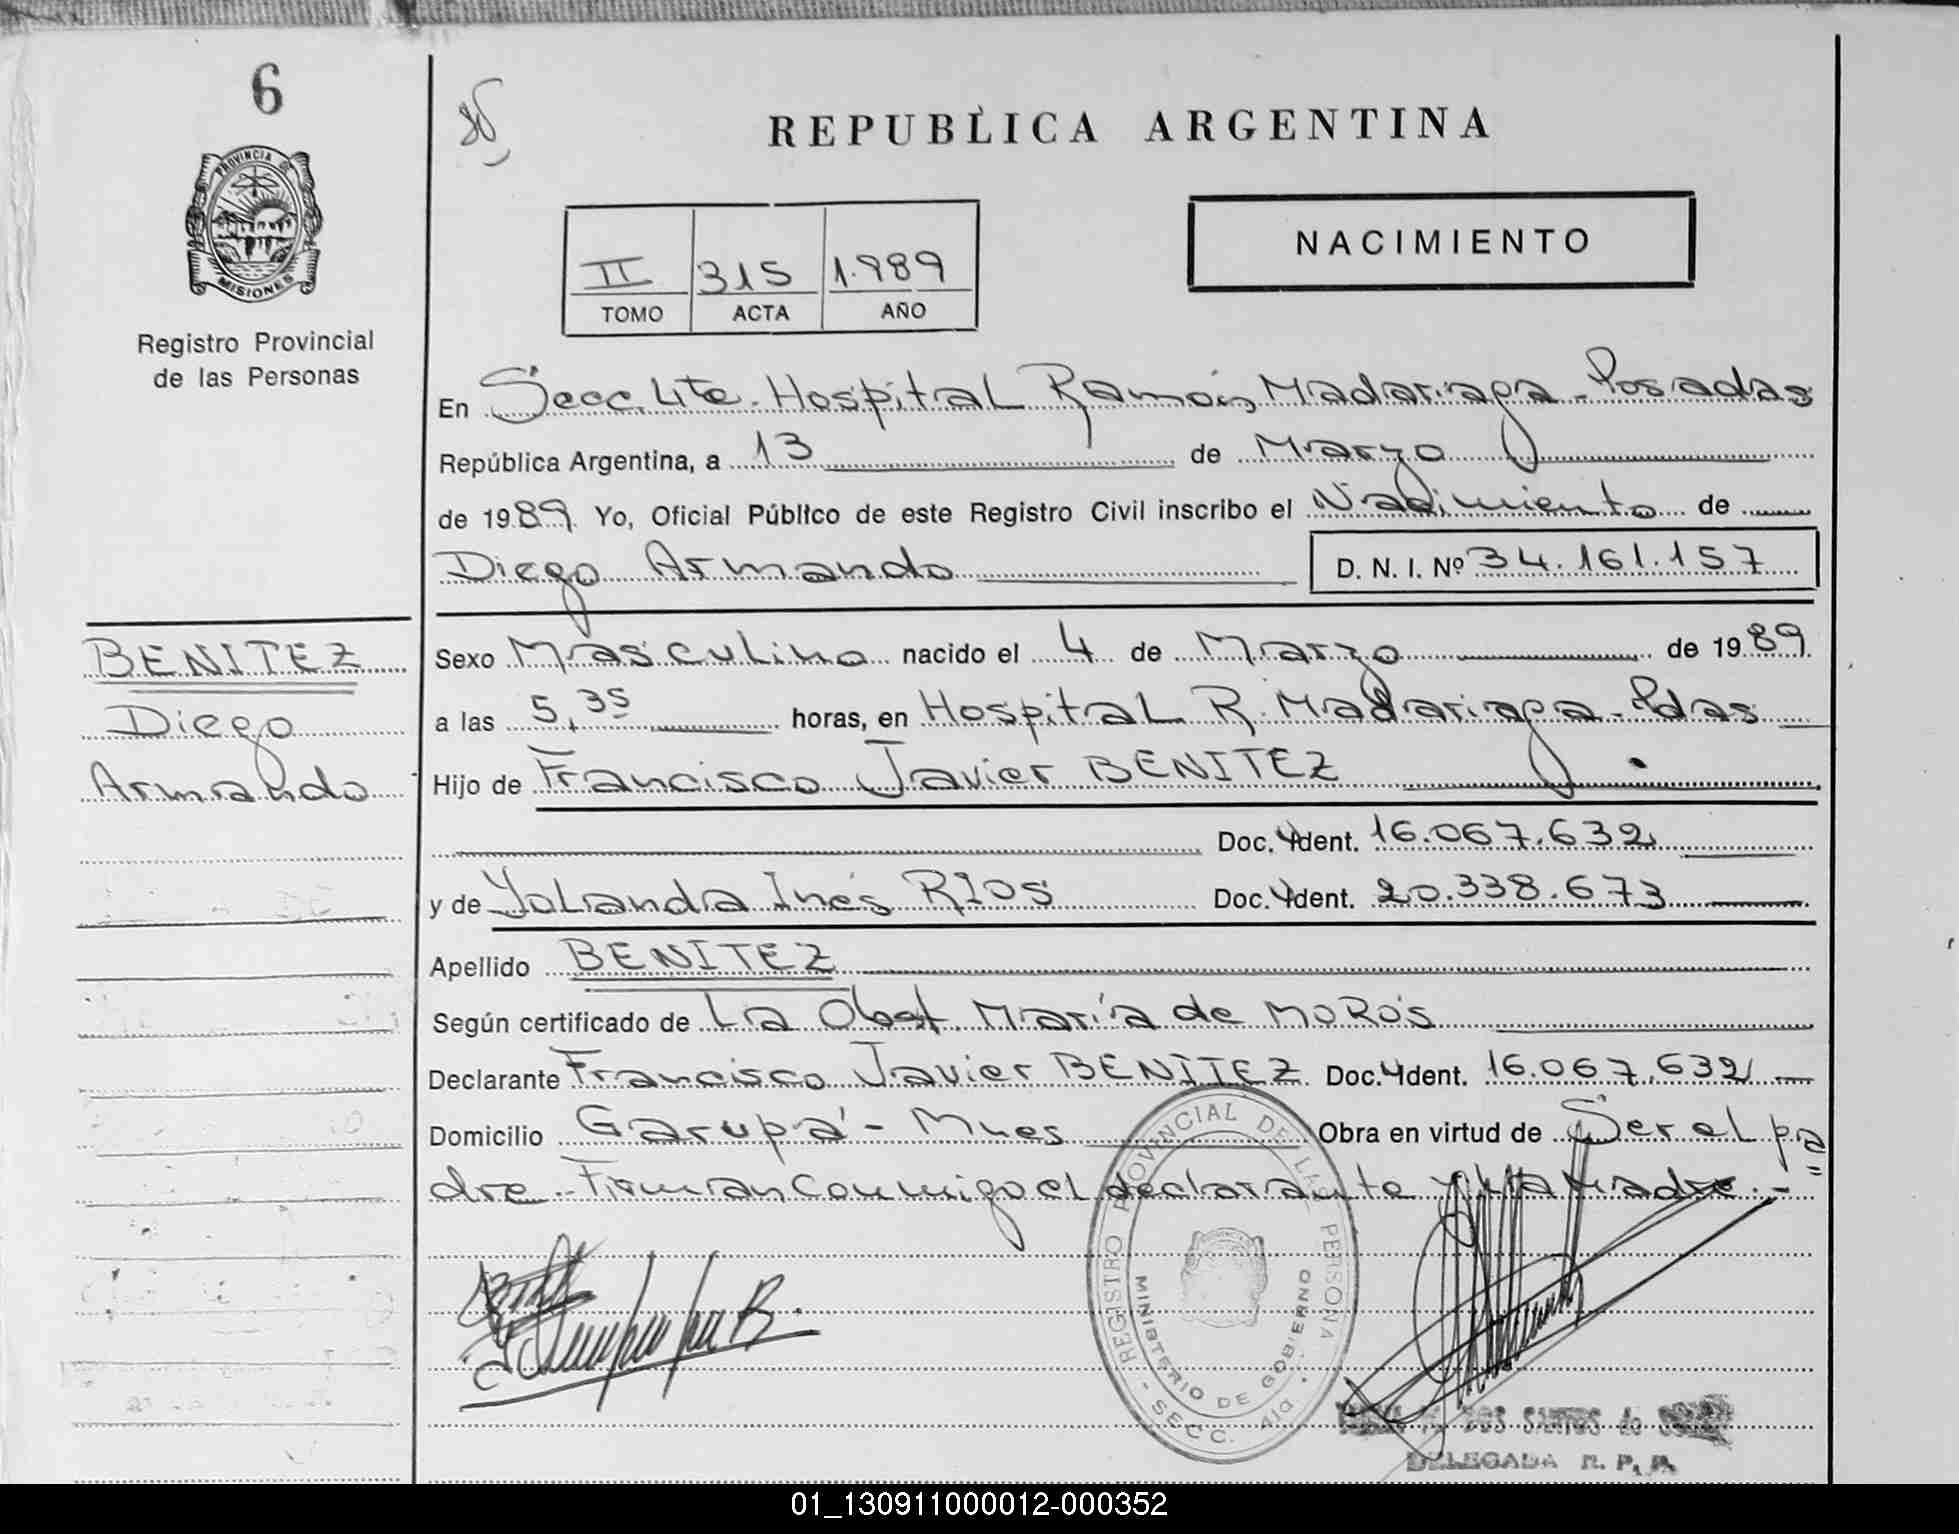 6
PROVINCIA DE
MISIONES
Registro Provincial
de las Personas
REPUBLICA ARGENTINA
II 315 1.989
TOMO ACTA AÑO
NACIMIENTO
En Secc. 4ta. Hospital Ramón Madariaga - Posadas
República Argentina, a 13 de Marzo
de 1989. Yo, Oficial Público de este Registro Civil inscribo el Nacimiento de
Diego Armando D. N. I. Nº 34.161.157
BENITEZ
Diego
Armando
Sexo Masculino nacido el 4 de Marzo de 1989.
a las 5,35 horas, en Hospital R. Madariaga - Pdas
Hijo de Francisco Javier BENITEZ
Doc. Ident. 16.067.632
y de Yolanda Inés RIOS Doc. Ident. 20.338.673
Apellido BENITEZ
Según certificado de La Obst. María de MOROS
Declarante Francisco Javier BENITEZ Doc. Ident. 16.067.632
Domicilio Garupá - Mnes Obra en virtud de Ser el pa=
dre.- Firman conmigo el declarante y la Madre.-
REGISTRO PROVINCIAL DE LAS PERSONAS
MINISTERIO DE GOBIERNO
- SECC. 4ta
DOS SANTOS de
DELEGADA R. P. P.
01_130911000012-000352